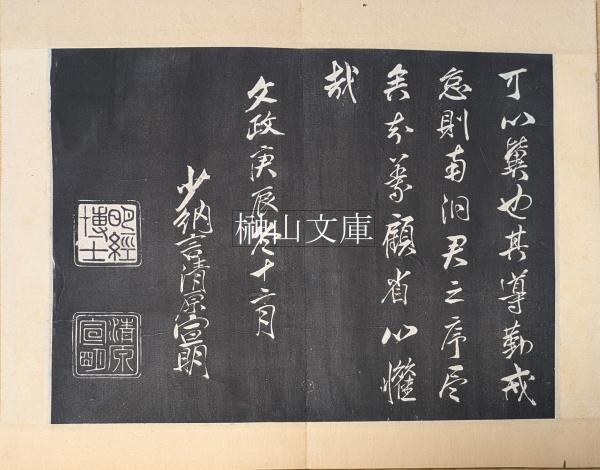 可以冀也其導勤戒
怠則南洞君之序尽
矣顧省以懼
哉
文政庚辰冬十二月
少納言清原宣明
明經
博士
清原
宣明
榊山文庫